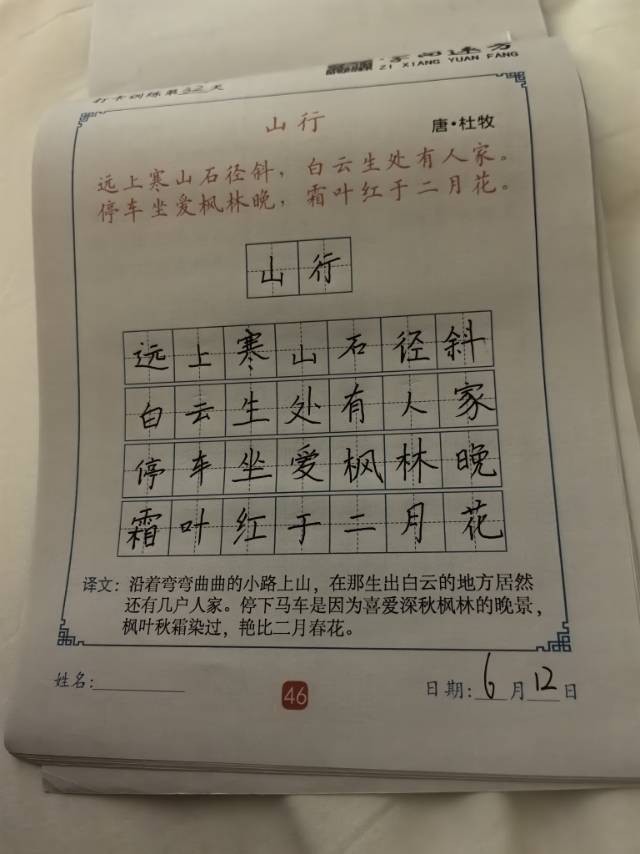 字向速方
ZI XIANG YUAN FANG
打卡训练第32天
山行
唐·杜牧
远上寒山石径斜，白云生处有人家。
停车坐爱枫林晚，霜叶红于二月花。
山行
远上寒山石径斜
白云生处有人家
停车坐爱枫林晚
霜叶红于二月花
译文：沿着弯弯曲曲的小路上山，在那生出白云的地方居然
还有几户人家。停下马车是因为喜爱深秋枫林的晚景，
枫叶秋霜染过，艳比二月春花。
姓名：
46
日期：6月12日